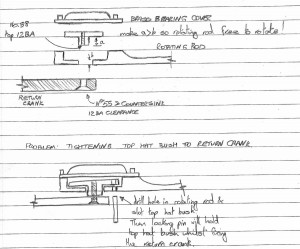 No. 38
tap 12BA
BRASS BEARING COVER
make a > b so rotating rod free to rotate!
a
ROTATING ROD
b
RETURN
CRANK
Nº55 & COUNTERSINK
12BA CLEARANCE
PROBLEM: TIGHTENING TOP HAT BUSH TO RETURN CRANK
drill hole in rotating rod &
slot top hat bush.
Then locking pin will hold
top hat bush whilst fixing
the return crank.